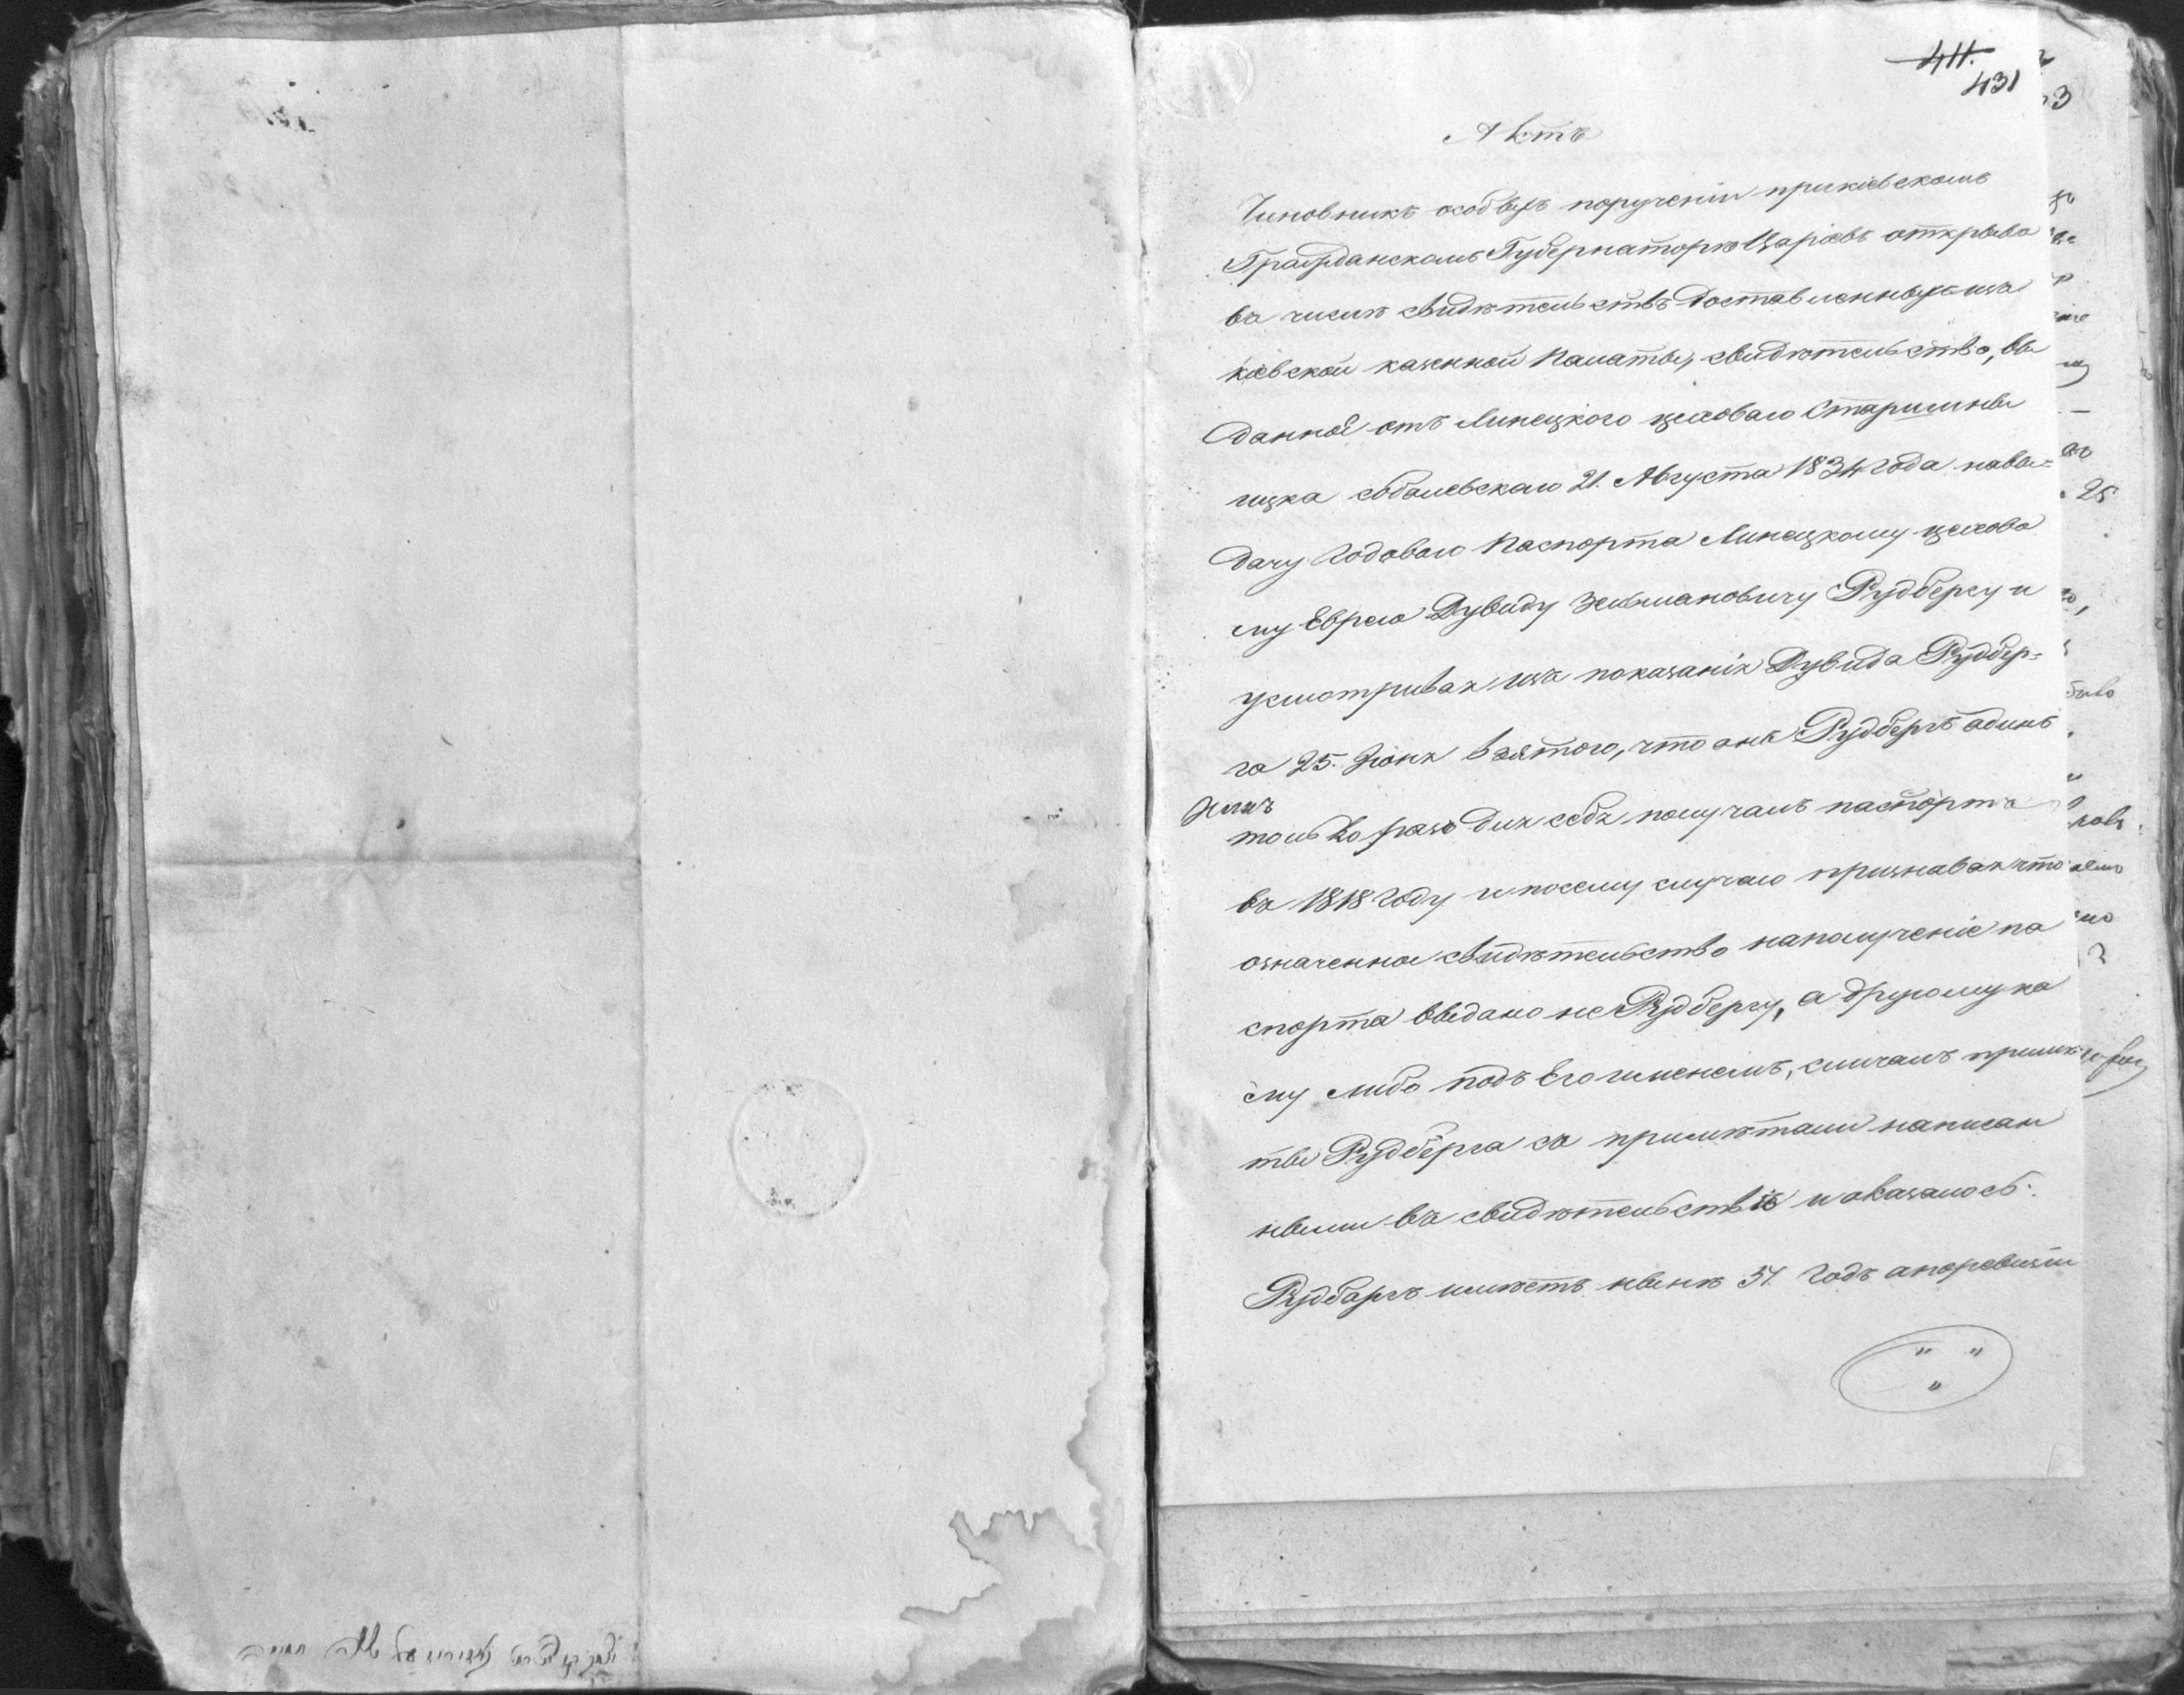 411.
431
Актъ
Чиновникъ особыхъ порученій прикіевскомъ
Гражданскомъ Губернаторѣ открыва
въ числѣ свидѣтельствъ доставленныхъ изъ
кіевской казенной Палаты, свидѣтельство, вы
данное отъ Липецкого цеховаго Старшины
ицка соболевскаго 21. Августа 1834 года навы=
дачу годоваго Паспорта Липецкому цехово
му Еврею Дувиду Зельмановичу Рудбергу и
усмотривая изъ показанія Дувида Рудбер=
га 25. Іюня взятого, что онъ Рудбергъ одинъ
только разъ для себя получалъ паспортъ
въ 1818 году и посему случаю признавая что
означенное свидѣтельство наполученіе па
спорта выдано не Рудбергу, а другому ка
му либо подъ Его именемъ, сличалъ примѣ
ты Рудберга съ примѣтами написан
ными въ свидѣтельствѣ и оказалось:
Рудбергъ имѣетъ нынѣ 51. годъ апоревизіи